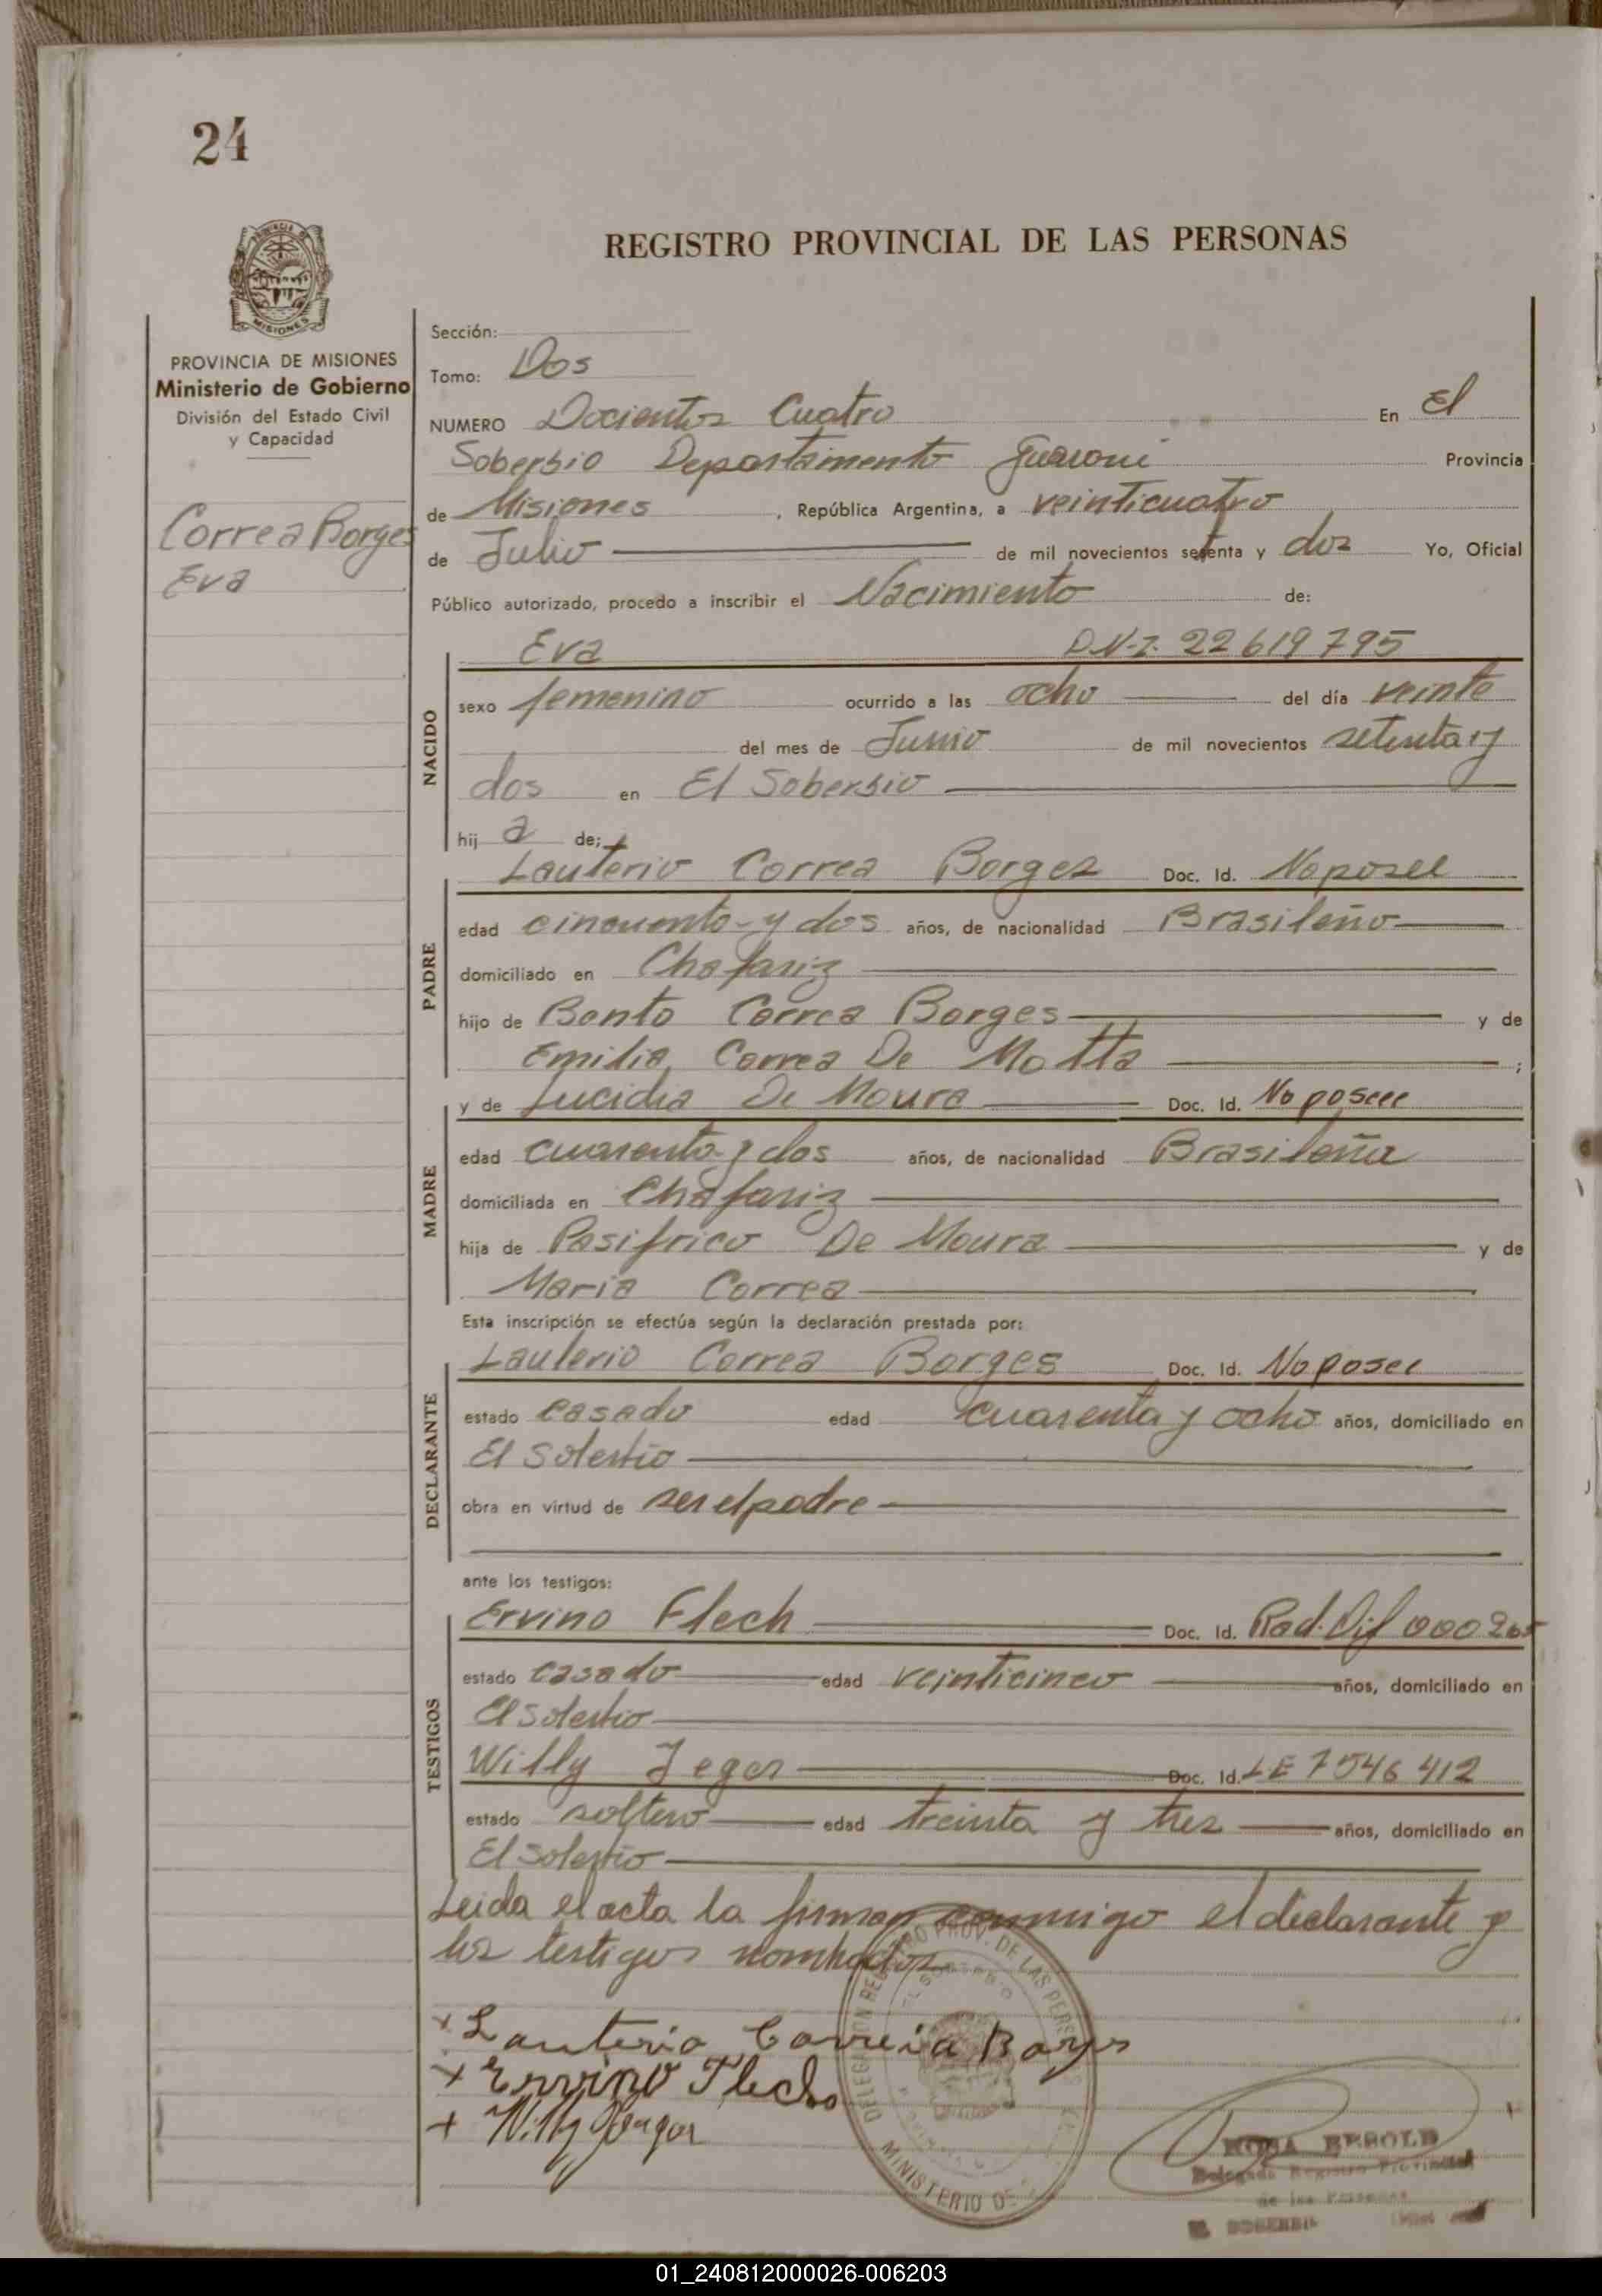 24
REGISTRO PROVINCIAL DE LAS PERSONAS
MISIONES
PROVINCIA DE MISIONES
Ministerio de Gobierno
División del Estado Civil
y Capacidad
Correa Borges
Eva
Sección:
Tomo: Dos
NUMERO Docientos Cuatro En El
Soberbio Departamento Guarani Provincia
de Misiones, República Argentina, a veinticuatro
de Julio de mil novecientos setenta y dos Yo, Oficial
Público autorizado, procedo a inscribir el Nacimiento de:
Eva D.N.I. 22619795
NACIDO
sexo femenino ocurrido a las ocho del día veinte
del mes de Junio de mil novecientos setenta y
dos en El Soberbio
hij a de:
Lauterio Correa Borges Doc. Id. No posee
PADRE
edad cincuenta y dos años, de nacionalidad Brasileño
domiciliado en Chafariz
hijo de Bento Correa Borges y de
Emilia Correa De Motta ;
y de Lucidia De Moura Doc. Id. No posee
MADRE
edad cuarenta y dos años, de nacionalidad Brasileña
domiciliada en Chafariz
hija de Pasifrico De Moura y de
Maria Correa
Esta inscripción se efectúa según la declaración prestada por:
Lauterio Correa Borges Doc. Id. No posee
DECLARANTE
estado casado edad cuarenta y ocho años, domiciliado en
El Soberbio
obra en virtud de ser el padre
ante los testigos:
Ervino Flech Doc. Id. Rad. Dif 000265
TESTIGOS
estado casado edad veinticinco años, domiciliado en
El Soberbio
Willy Jeger Doc. Id. LE 7546412
estado soltero edad treinta y tres años, domiciliado en
El Soberbio
Leida el acta la firman conmigo el declarante y
los testigos nombrados
+ Lauterio Correia Borges
+ Ervino Flech
+ Willy
DELEGACION REGISTRO PROV. DE LAS PERSONAS
EL SOBERBIO
MINISTERIO DE
ROSA BESOLD
Delegada Registro Provincial
de las Personas
EL SOBERBIO
01_240812000026-006203